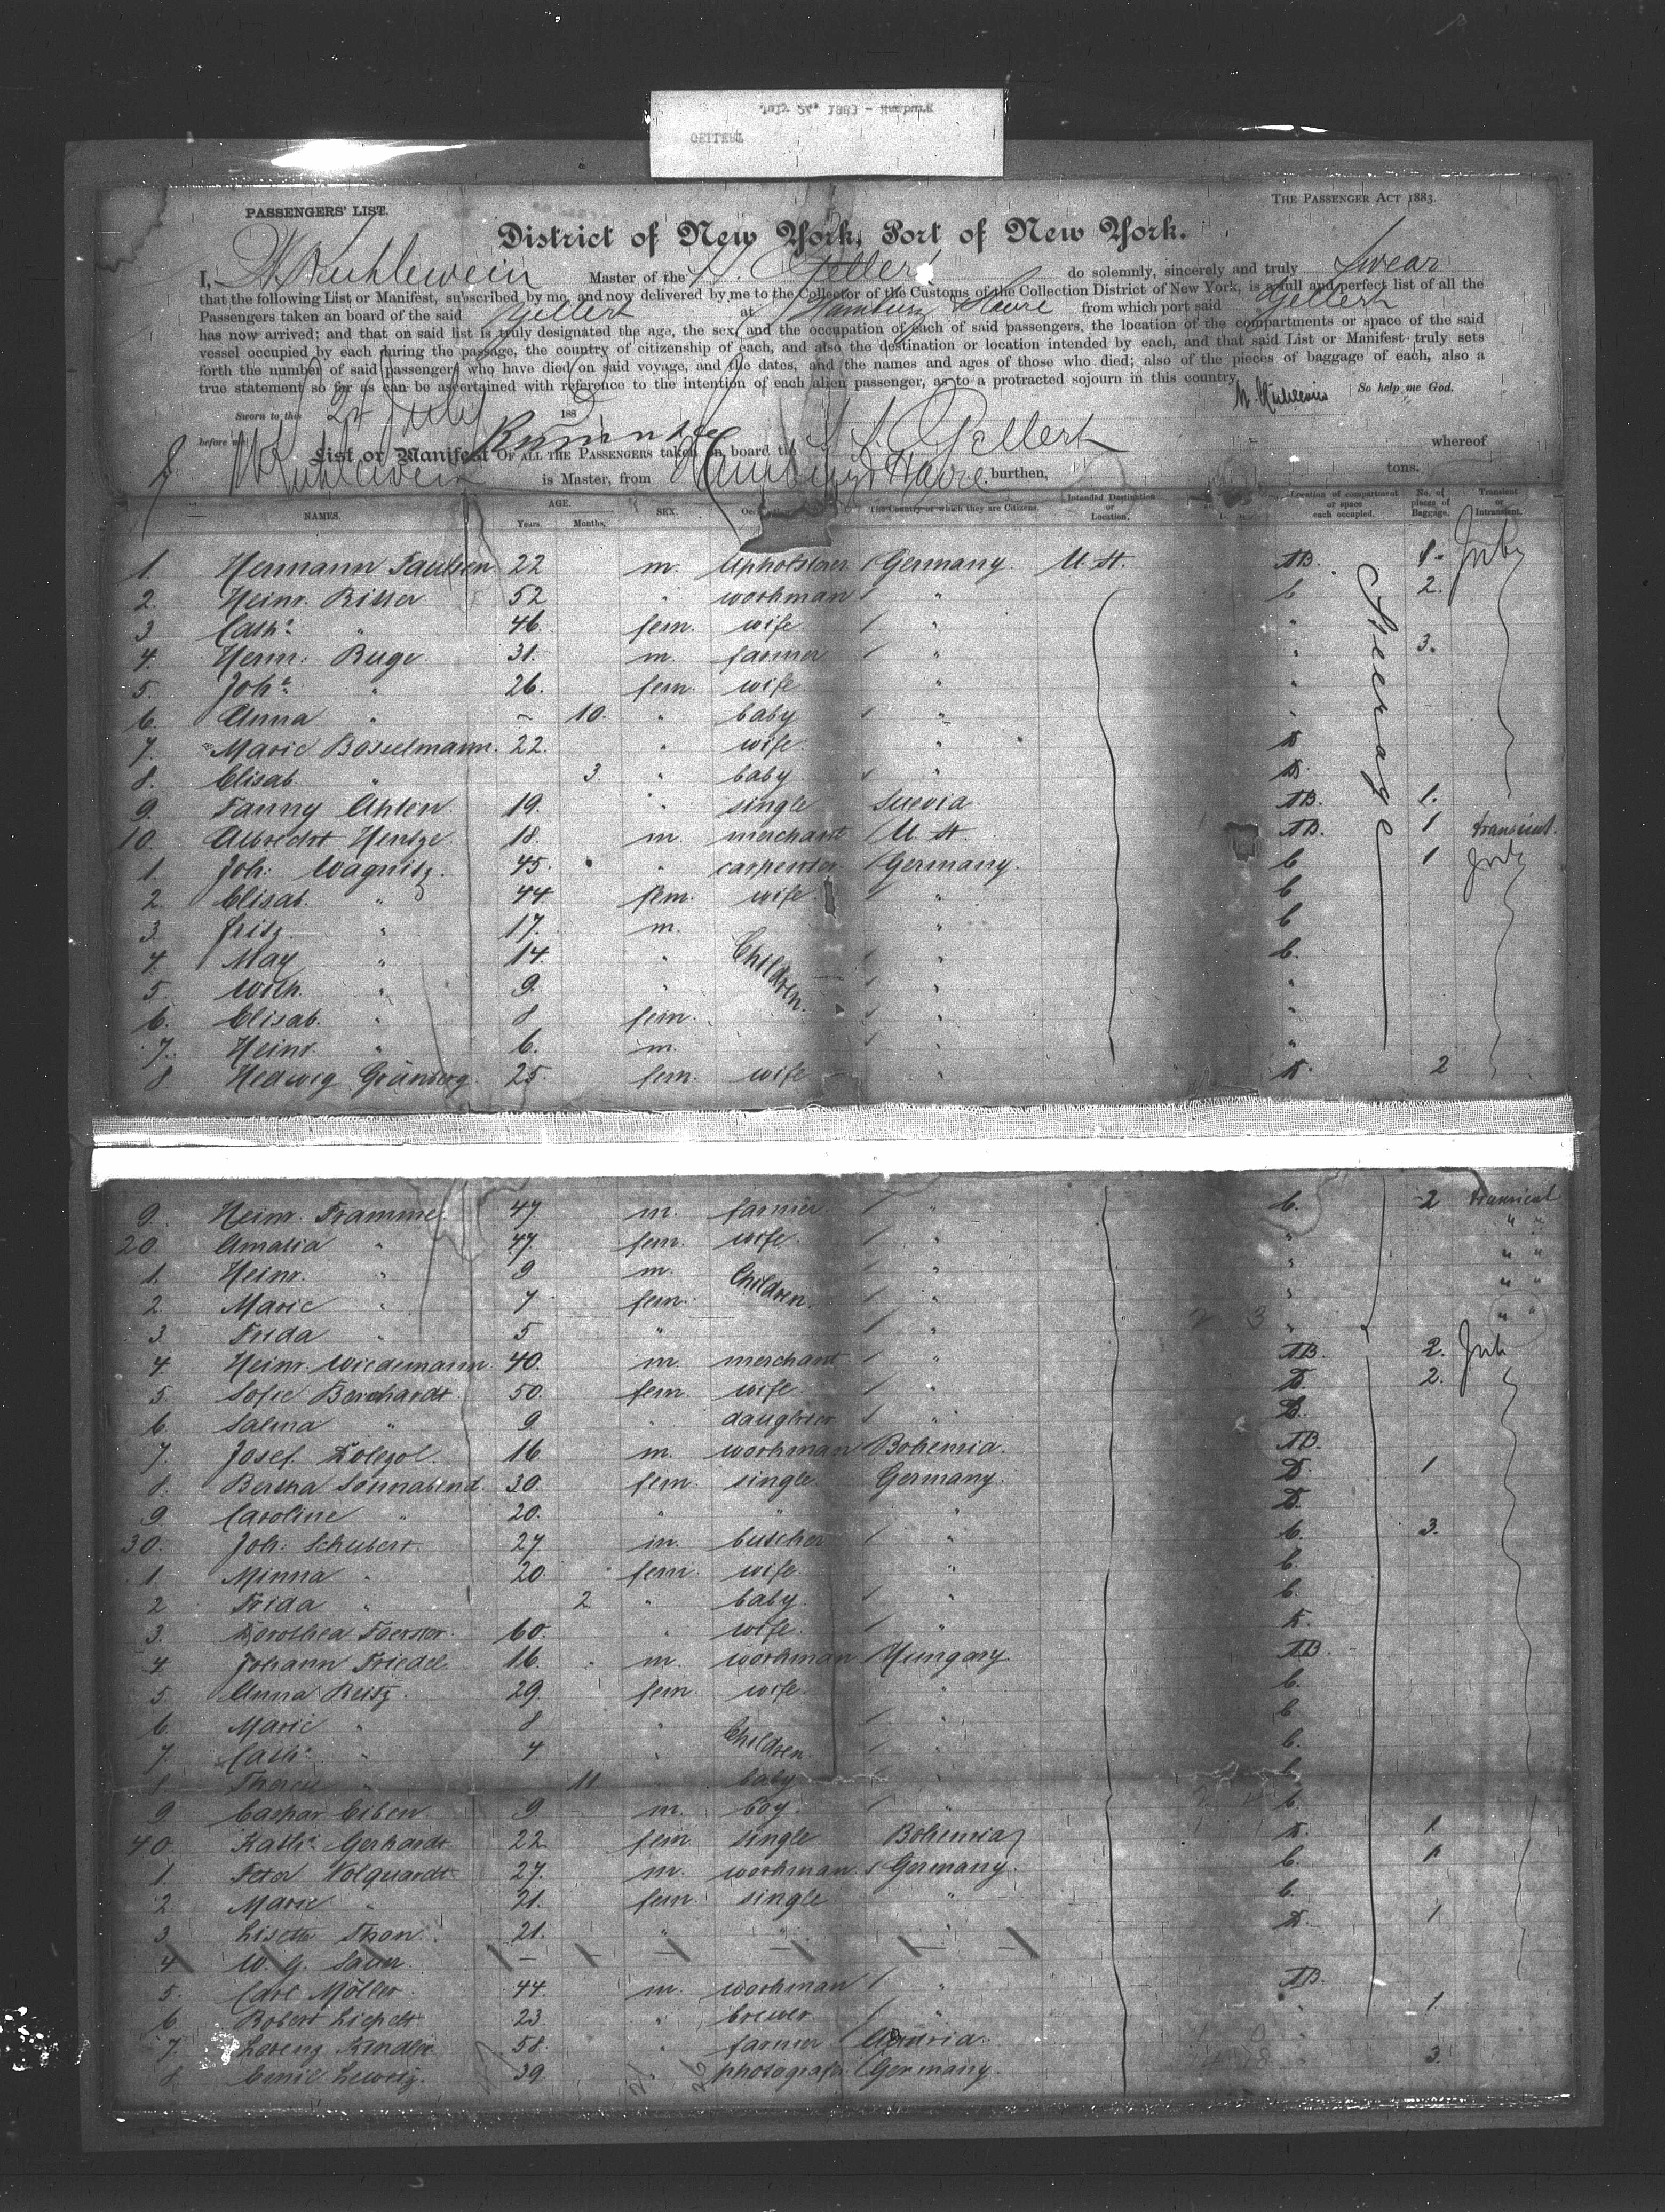 GEITERT
PASSENGERS' LIST.
THE PASSENGER ACT 1883.
District of New York, Port of New York.
I, Kuhlewein Master of the Gellert do solemnly, sincerely and truly Swear
that the following List or Manifest, subscribed by me, and now delivered by me to the Collector of the Customs of the Collection District of New York, is a full and perfect list of all the
Passengers taken on board of the said Gellert at Hamburg Havre from which port said Gellert
has now arrived; and that on said list is truly designated the age, the sex and the occupation of each of said passengers, the location of the compartments or space of the said
vessel occupied by each during the passage, the country of citizenship of each, and also the destination or location intended by each, and that said List or Manifest truly sets
forth the number of said passengers who have died on said voyage, and the dates, and the names and ages of those who died; also of the pieces of baggage of each, also a
true statement so far as can be ascertained with reference to the intention of each alien passenger, as to a protracted sojourn in this country
So help me God.
Sworn to this July 188
before me
List or Manifest OF ALL THE PASSENGERS taken on board the Gellert whereof
Kuhlewein is Master, from Hamburg & Havre burthen, tons.
NAMES. AGE. Years. Months. SEX. The Country of which they are Citizens. Intended Destination or Location. Location of compartment or space each occupied. No. of pieces of Baggage. Transient or Intransient.
1. Hermann Paulsen 22 m. Upholsterer Germany. U. St. AB. 1.
2. Heinr. Ritter 52 " workman " C 2.
3 Cathe. " 46. fem. wife. " "
4. Herm: Ruge. 31. m. farmer " " 3.
5. Johe. " 26. fem. wife " "
6. Anna " – 10. " baby " "
7. Marie Bosselmann. 22. " wife. " D
8. Elisab. " 3. " baby " D.
9. Fanny Ahlen. 19. " single Suevia. AB. 1.
10. Albrecht Hentze. 18. m. merchant U. St. AB. 1 transient.
1. Joh: Wagnitz. 45. " carpenter. Germany. C 1
2. Elisab. " 44. fem. wife. " C
3. Fritz " 17. m. " C
4. May " 14. " Children. " C.
5. Wilh. " 9. " " "
6. Elisab. " 8 fem. " "
7. Heinr. " 6. m. " "
8 Hedwig Grünberg. 25. fem. wife " D. 2
Steerage
9. Heinr. Framme. 47. m. farmer " C. 2 transient
20. Amalia " 47. fem. wife. " " " "
1. Heinr. " 9 m. Children. " " " "
2. Marie " 7 fem. " " " "
3 Frida " 5 " " " " "
4. Heinr. Wiedemann. 40. m. merchant " AB. 2.
5. Sofie Borchardt. 50. fem. wife " D. 2.
6. Salma " 9 " daughter " D.
7. Josef 16 m. workman Bohemia. AB.
8. Bertha Sonnabend. 30. fem. single Germany. D. 1
9. Caroline " 20. " " " D.
30. Joh: Schubert. 27 m. butcher " C. 3.
1. Minna " 20 fem. wife. " C.
2 Frida " 2 " baby. " C.
3. Dorothea Foerster. 60. " wife. " D.
4. Johann Friedel 16. m. workman Hungary AB.
5. Anna Reitz. 29. fem. wife. " C.
6. Marie " 8 " Children. " C
7. Cathe. " 4 " " C.
8. " 11 baby " C
9 Caspar Eiben 9. m. boy. " C.
40. Kathe. Gerhardt 22 fem. single Bohemia D. 1.
1. Peter Volquardt 27. m. workman Germany. C. 1
2. Marie " 21. fem. single " C.
3. Lisette Thon. 21. " " " D. 1
4 W. G.
5. Carl Möller. 44. m. workman " AB.
6. Robert 23 " brewer. " " 1.
7. Lorenz 58. " farmer Austria.
8 Emil 39. photografer Germany. 3.